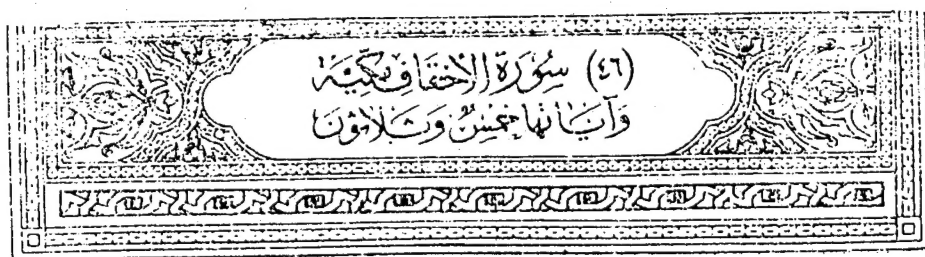 (٤٦) سُورَةُ الأَحْقَافِ مَكِّيَّة
وَآيَاتُهَا خَمْسٌ وَثَلَاثُونَ